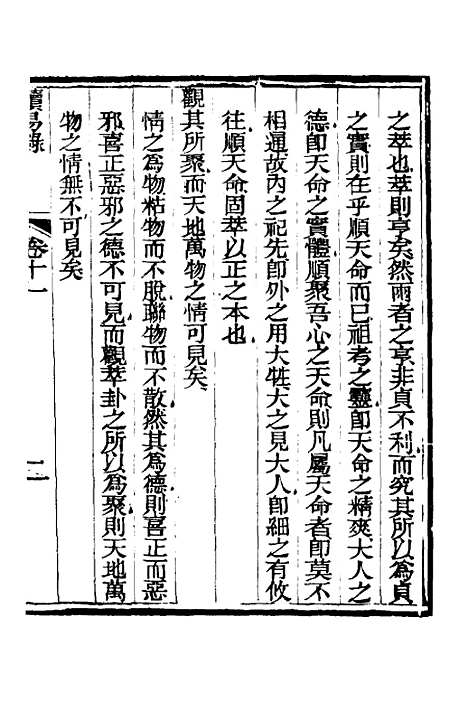 之萃也萃則亨矣然兩者之亨非貞不利而究其所以為貞
之實則在乎順天命而已祖考之靈卽天命之精爽大人之
德卽天命之實體順聚吾心之天命則凡屬天命者卽莫不
相通故內之祀先卽外之用大牲大之見大人卽細之有攸
往順天命固萃以正之本也
觀其所聚而天地萬物之情可見矣
情之為物粘物而不脫聯物而不散然其為德則喜正而惡
邪喜正惡邪之德不可見而觀萃卦之所以為聚則天地萬
物之情無不可見矣
讀易錄
卷十一
二